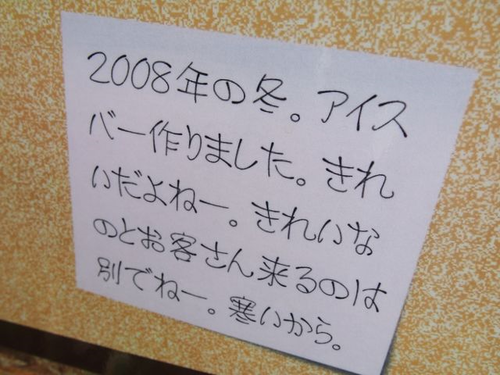 2008年の冬。アイス
バー作りました。きれ
いだよねー。きれいな
のとお客さん来るのは
別でねー。寒いから。